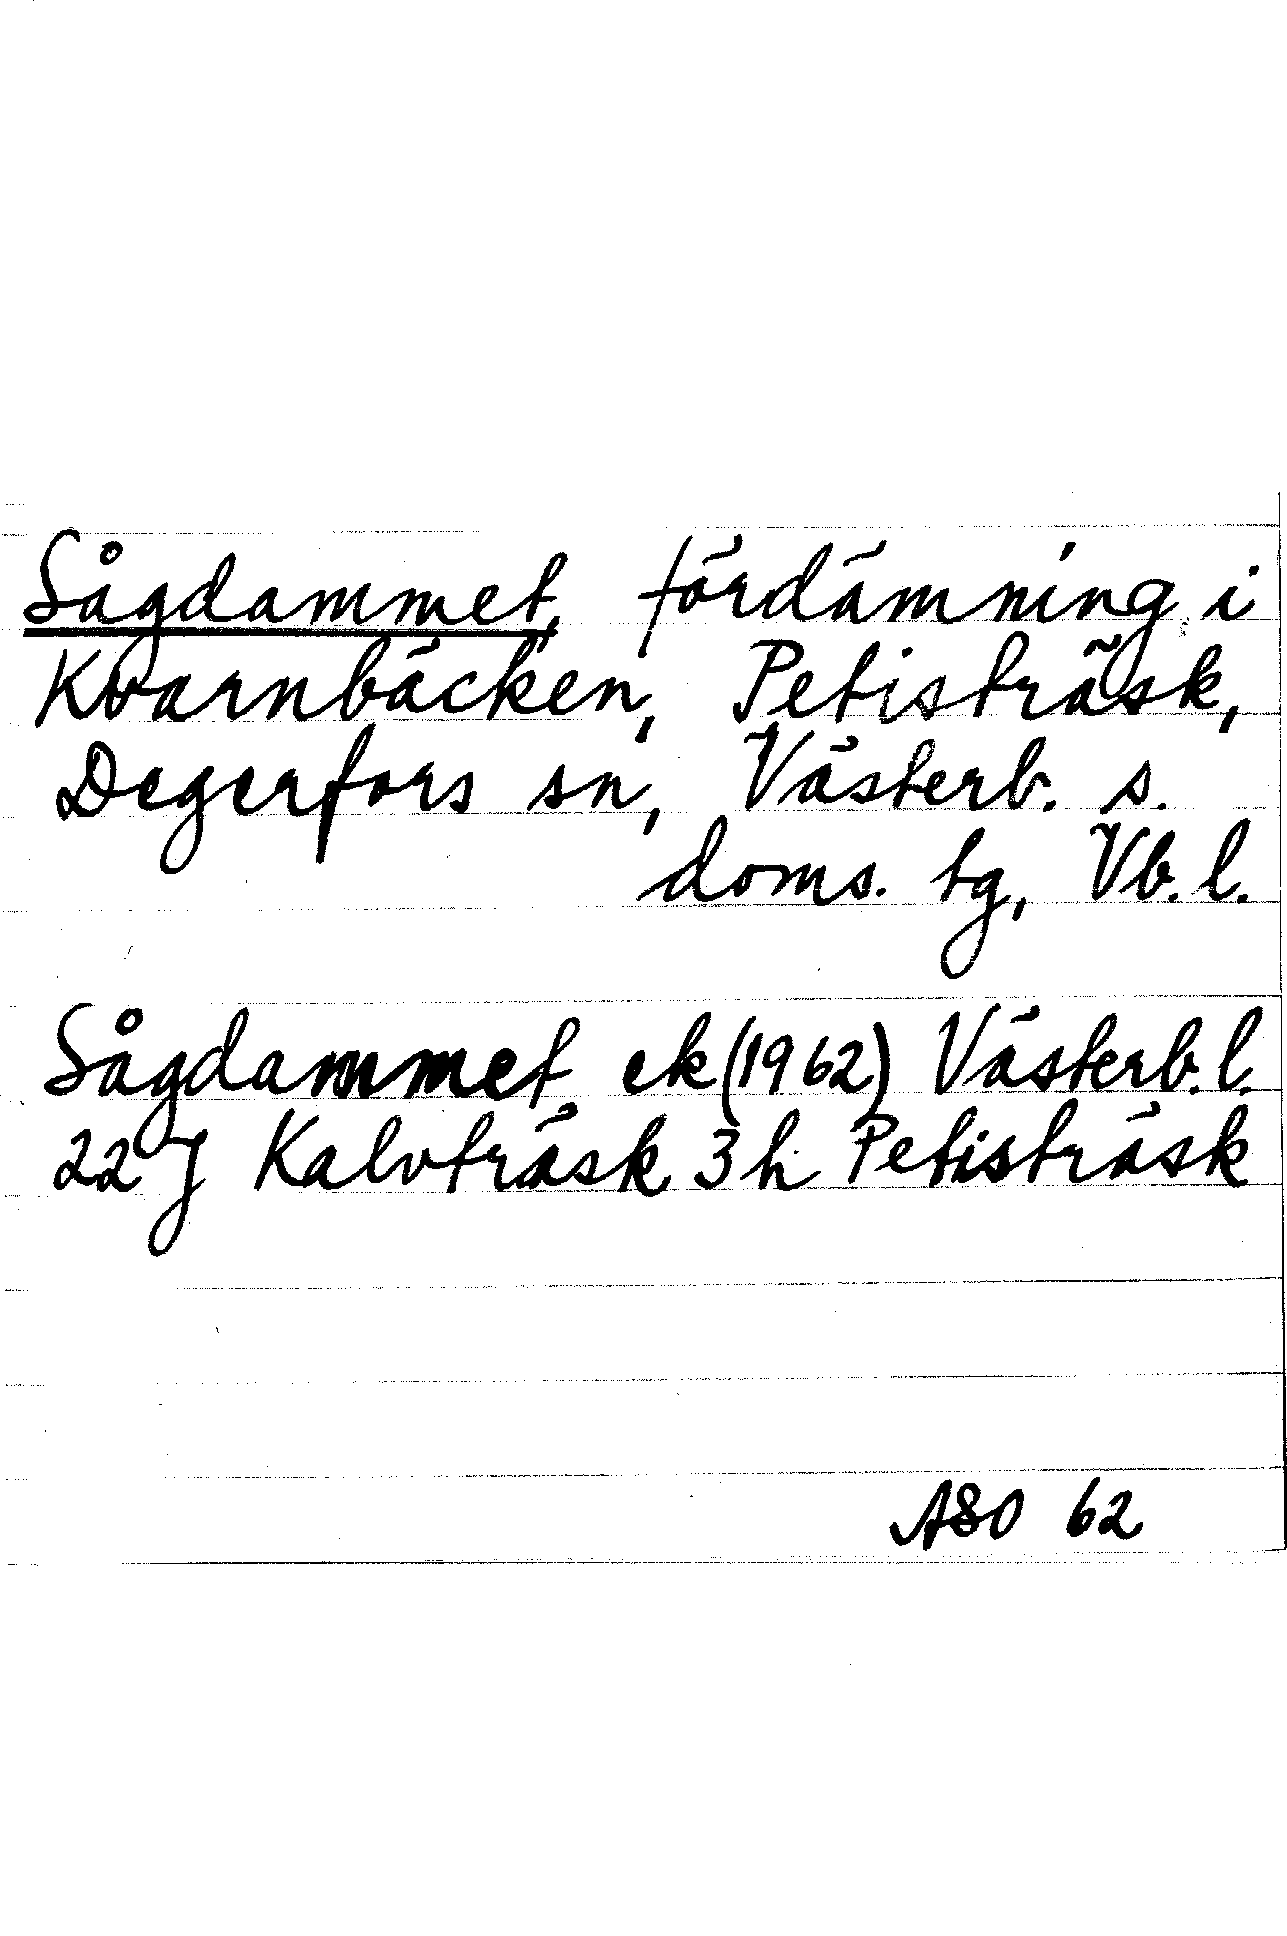 Sågdammet, fördämning i
Kvarnbäcken, Petisträsk,
Degerfors sn, Västerb. s.
doms. tg, Vb. l.
Sågdammet ek (1962) Västerb. l.
22 J Kalvträsk 3 h Petisträsk
ASO 62